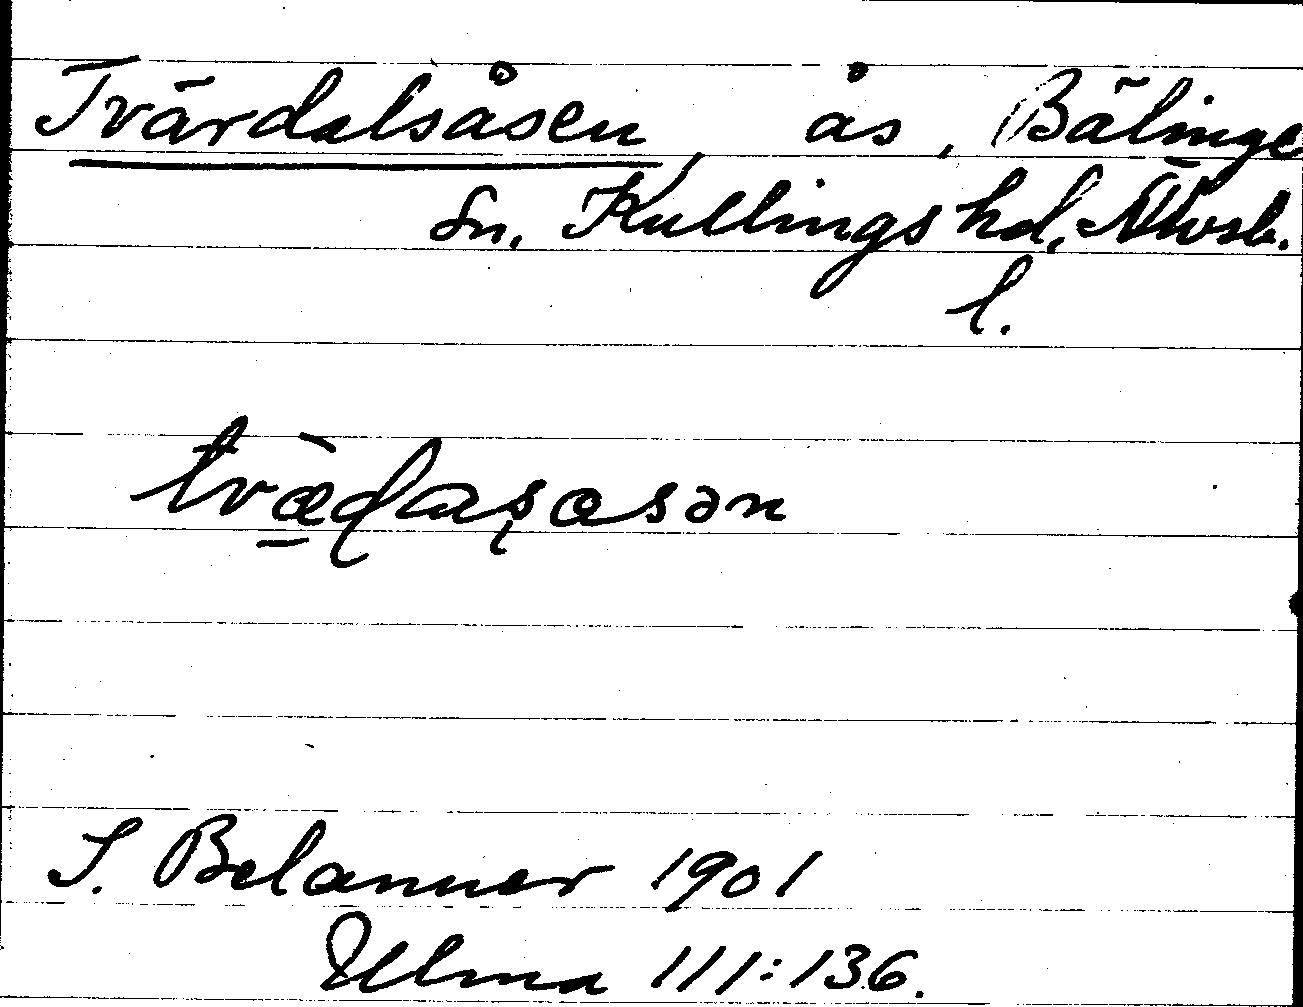 Tvärdalsåsen, ås, Bälinge
sn, Kullings hd, Älvsb.
l.
tvæ̀ɖaʂasən
S. Belanner 1901
Ulma 111:136.